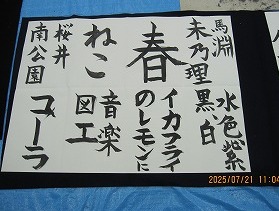 馬淵
未乃理
水色紫
黒、白
春
イカフライ
のレモンに
ねこ
音楽
図工
桜井
南公園
コーラ
2025/07/21 11:04